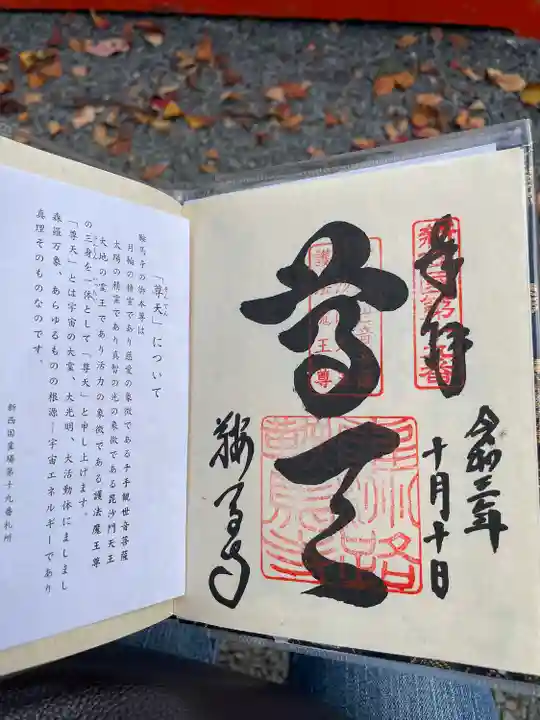 「尊天」について
そんてん
鞍馬寺の御本尊は
月輪の精霊であり慈愛の象徴である千手観世音菩薩
太陽の精霊であり真智の光の象徴である毘沙門天王
大地の霊王であり活力の象徴である護法魔王尊
の三身を一体として「尊天」と申し上げます。
「尊天」とは宇宙の大霊、大光明、大活動体にましまし
森羅万象、あらゆるものの根源―宇宙エネルギーであり
真理そのものなのです。
新西国霊場第十九番札所
奉拝
令和三年
十月十日
尊天
鞍馬寺